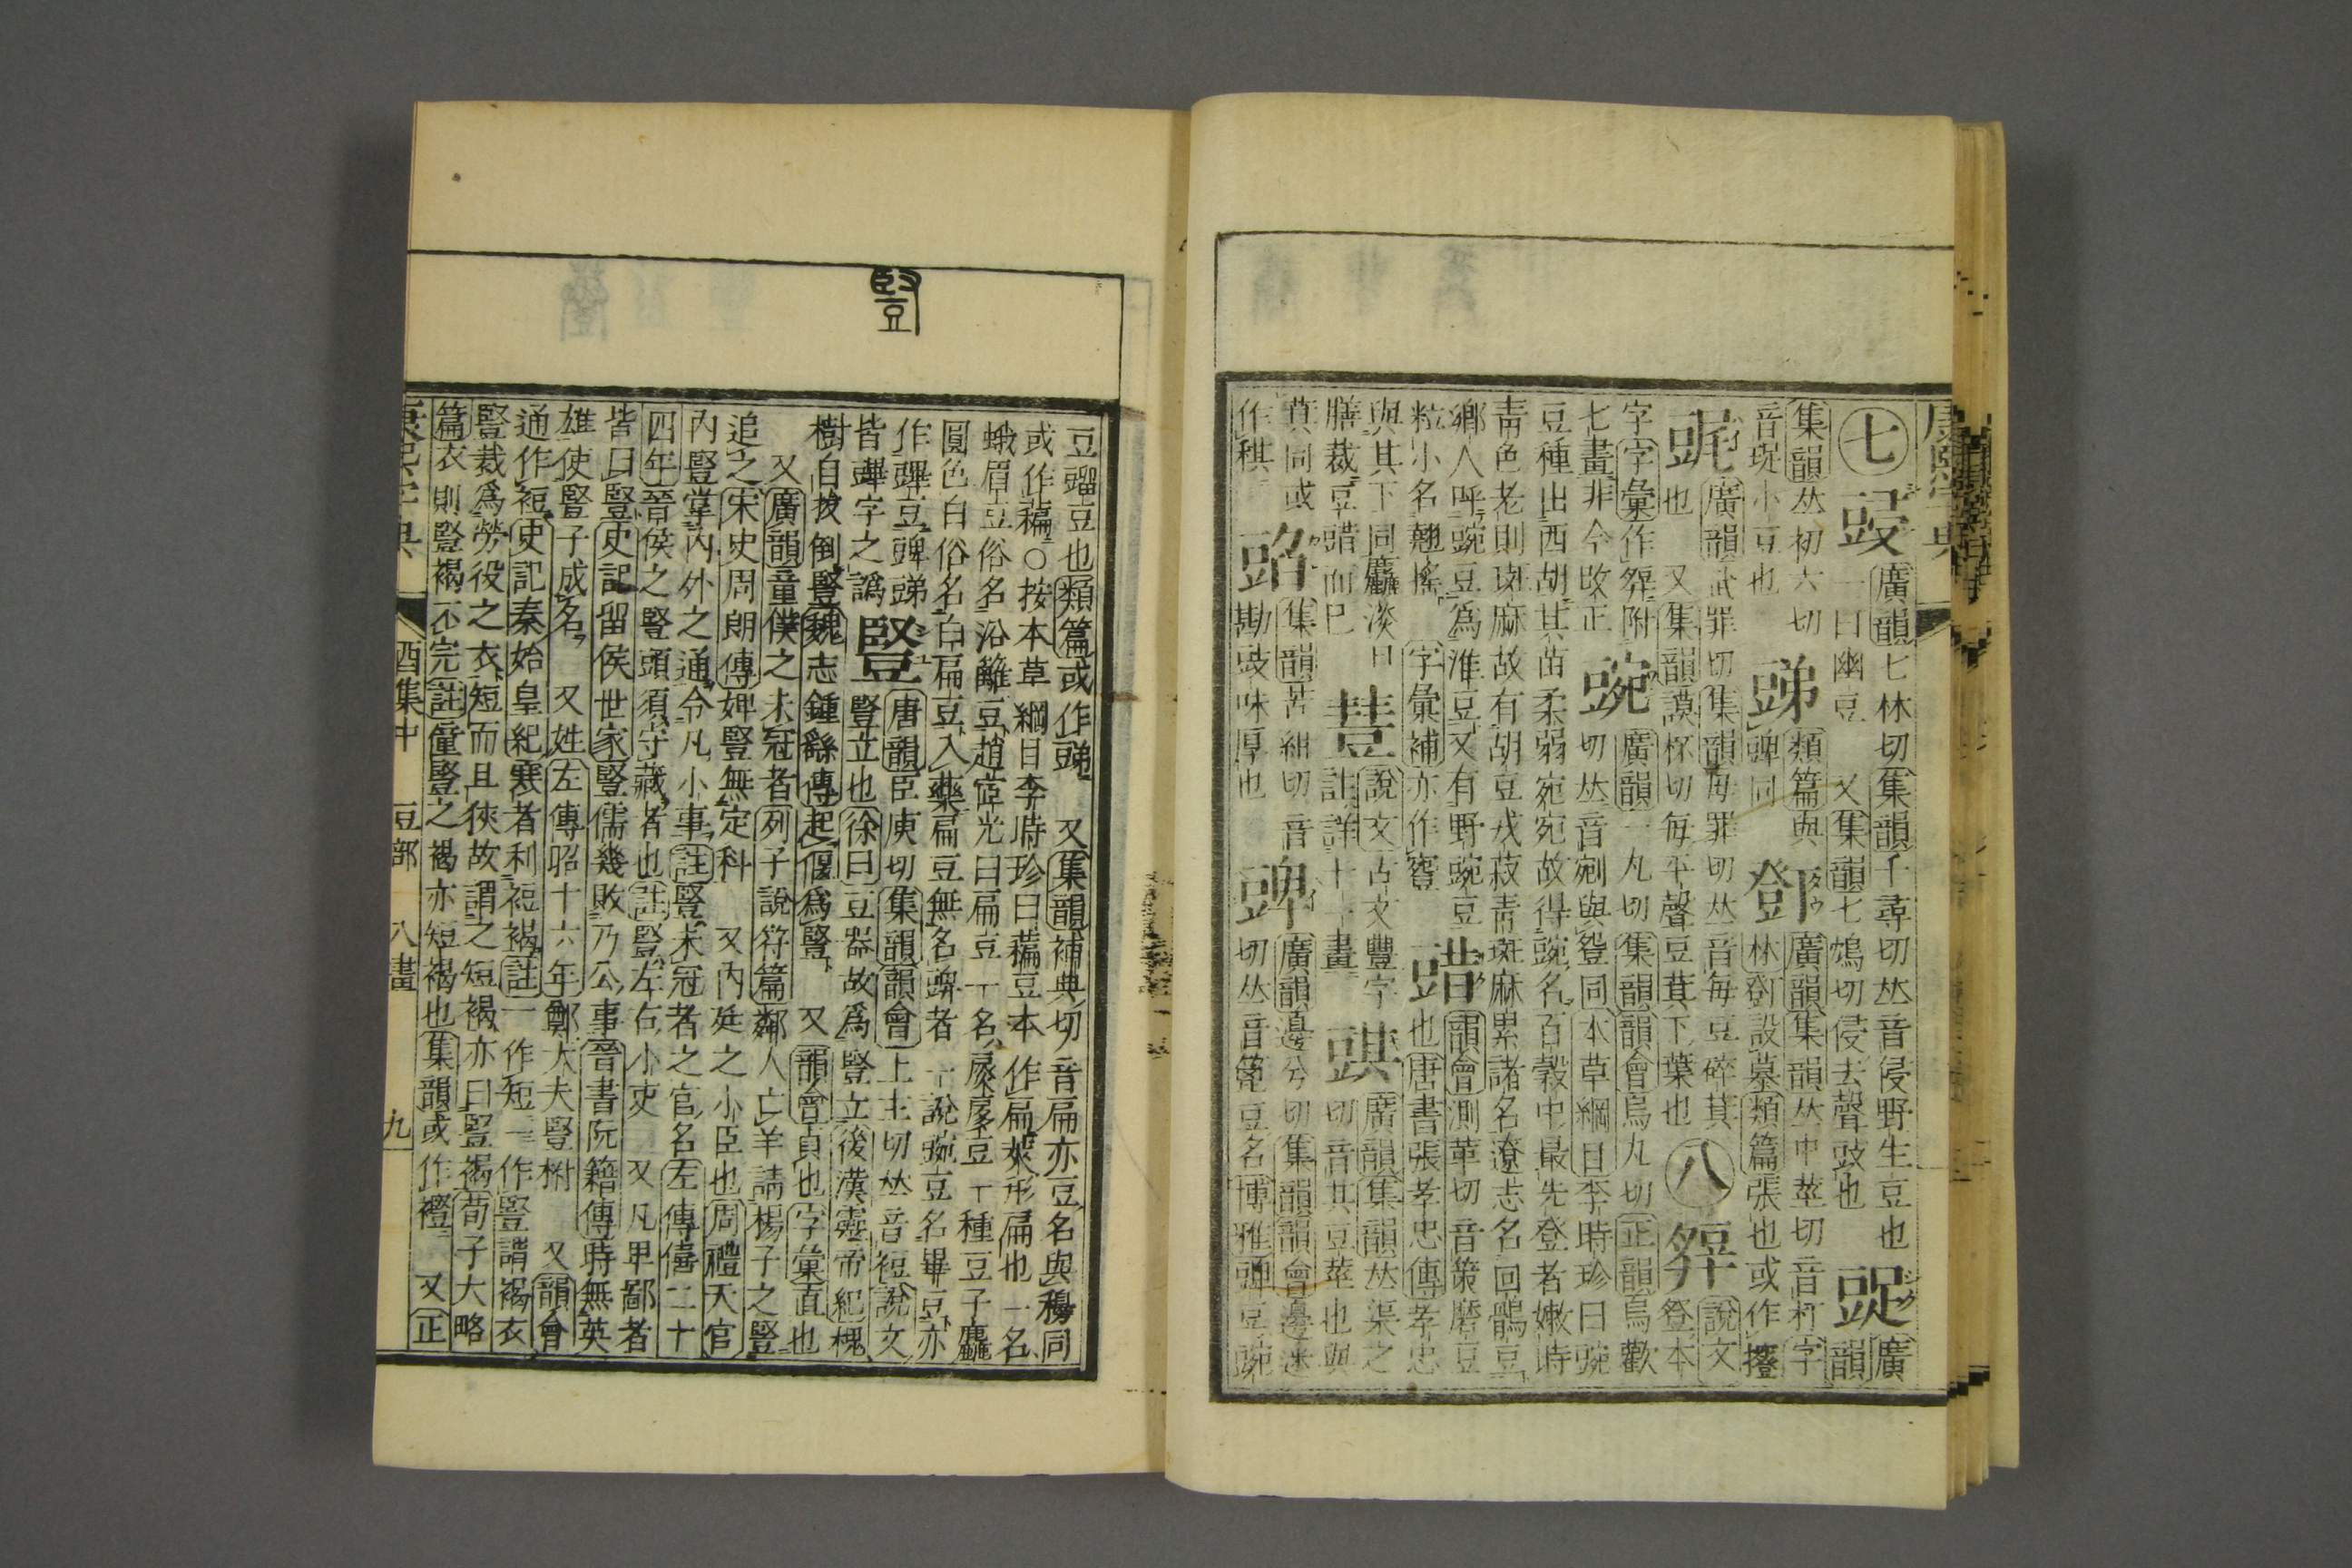 康熙字典
七 廣韻七林切集韻千尋切𠀤音侵野生豆也 廣
一曰幽豆 又集韻七鴆切侵去聲豉也 韻
集韻𠀤初六切 豍 類篇與 廣韻集韻𠀤中莖切音朾字
音珿小豆也 豍同 林㽅設墓類篇張也或作㩫
廣韻武罪切集韻母罪切𠀤音每豆碎萁 說文
也 又集韻謨杯切每平聲豆萁下葉也 八 豋本
字字彙作䍒附 廣韻一丸切集韻韻會烏九切正韻烏歡
七畫非今改正 豌 切𠀤音剜與䝀同本草綱目李時珍曰豌
豆種出西胡其苗柔弱宛宛故得豌名百穀中最先登者嫩時
靑色老則斑麻故有胡豆戎菽靑斑麻累諸名遼志名回鶻豆
鄕人呼豌豆爲淮豆又有野豌豆 韻會測革切音策磨豆
粒小名翹搖 字彙補亦作䝂 䜺 也唐書張孝忠傳孝忠
與其下同麤淡日 說文古文豐字 廣韻集韻𠀤渠之
膳裁豆䜺而已 註詳十一畫 切音其豆莖也與
萁同或 集韻苦紺切音 廣韻邊兮切集韻韻會邊迷
作稘 勘豉味厚也 豍 切𠀤音篦豆名博雅豍豆豌
豆䝁豆也類篇或作䜻 又集韻補典切音扁亦豆名與稨同
或作藊○按本草綱目李時珍曰藊豆本作扁莢形扁也一名
蛾眉豆俗名沿籬豆趙㝎光曰扁豆一名豖豖豆一種豆子麤
圓色白俗名白扁豆入藥扁豆無名豍者一說豌豆名畢豆亦
作䟆豆豍 唐韻臣庾切集韻韻會上主切𠀤音裋說文
皆字之譌 豎 豎立也徐曰豆器故爲豎立後漢靈帝紀槐
樹自拔倒豎魏志鍾繇傳起偃爲豎 又韻會貞也字彙直也
又廣韻童僕之未冠者列子說符篇鄰人亡羊請楊子之豎
追之宋史周朗傳婢豎無定科 又內廷之小臣也周禮天官
內豎掌內外之通令凡小事註豎未冠者之官名左傳僖二十
四年晉侯之豎頭須守藏者也註豎左右小吏 又凡𤰞鄙者
皆曰豎史記留侯世家豎儒幾敗乃公事晉書阮籍傳時無英
雄使豎子成名 又姓左傳昭十六年鄭大夫豎柎 又韻會
通作裋史記秦始皇紀寒者利裋褐註一作短一作豎謂褐衣
豎裁爲勞役之衣短而且狹故謂之短褐亦曰豎褐荀子大略
篇衣則豎褐不完註僮豎之褐亦短褐也集韻或作𧞫 又正
康熙字典 酉集中 豆部 八畫 九
豎